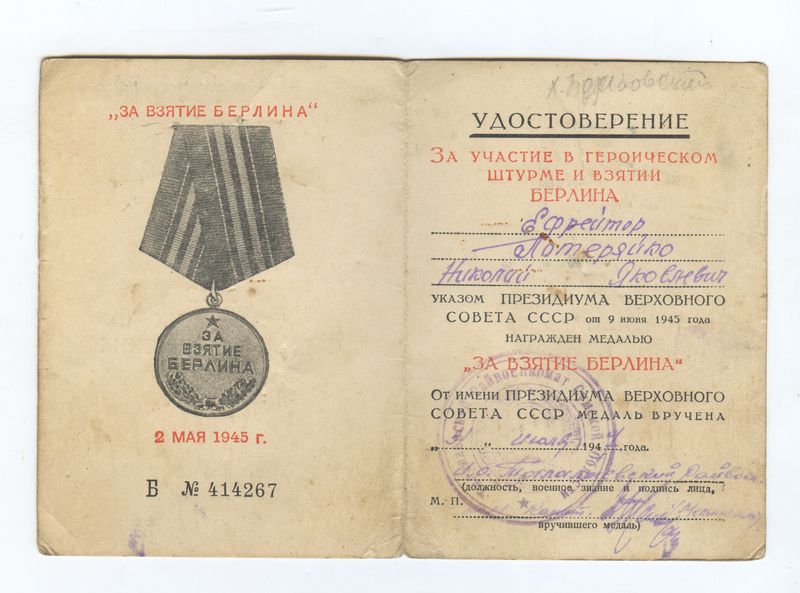 „ЗА ВЗЯТИЕ БЕРЛИНА“
ЗА
ВЗЯТИЕ
БЕРЛИНА
2 МАЯ 1945 г.
Б № 414267
УДОСТОВЕРЕНИЕ
ЗА УЧАСТИЕ В ГЕРОИЧЕСКОМ
ШТУРМЕ И ВЗЯТИИ
БЕРЛИНА
Ефрейтор
Потеряйко
Николай Яковлевич
УКАЗОМ ПРЕЗИДИУМА ВЕРХОВНОГО
СОВЕТА СССР от 9 июня 1945 года
НАГРАЖДЕН МЕДАЛЬЮ
„ЗА ВЗЯТИЕ БЕРЛИНА“
От имени ПРЕЗИДИУМА ВЕРХОВНОГО
СОВЕТА СССР МЕДАЛЬ ВРУЧЕНА
„ “ июля 194 года.
И.о.
(должность, военное звание и подпись лица,
М. П.
вручившего медаль)